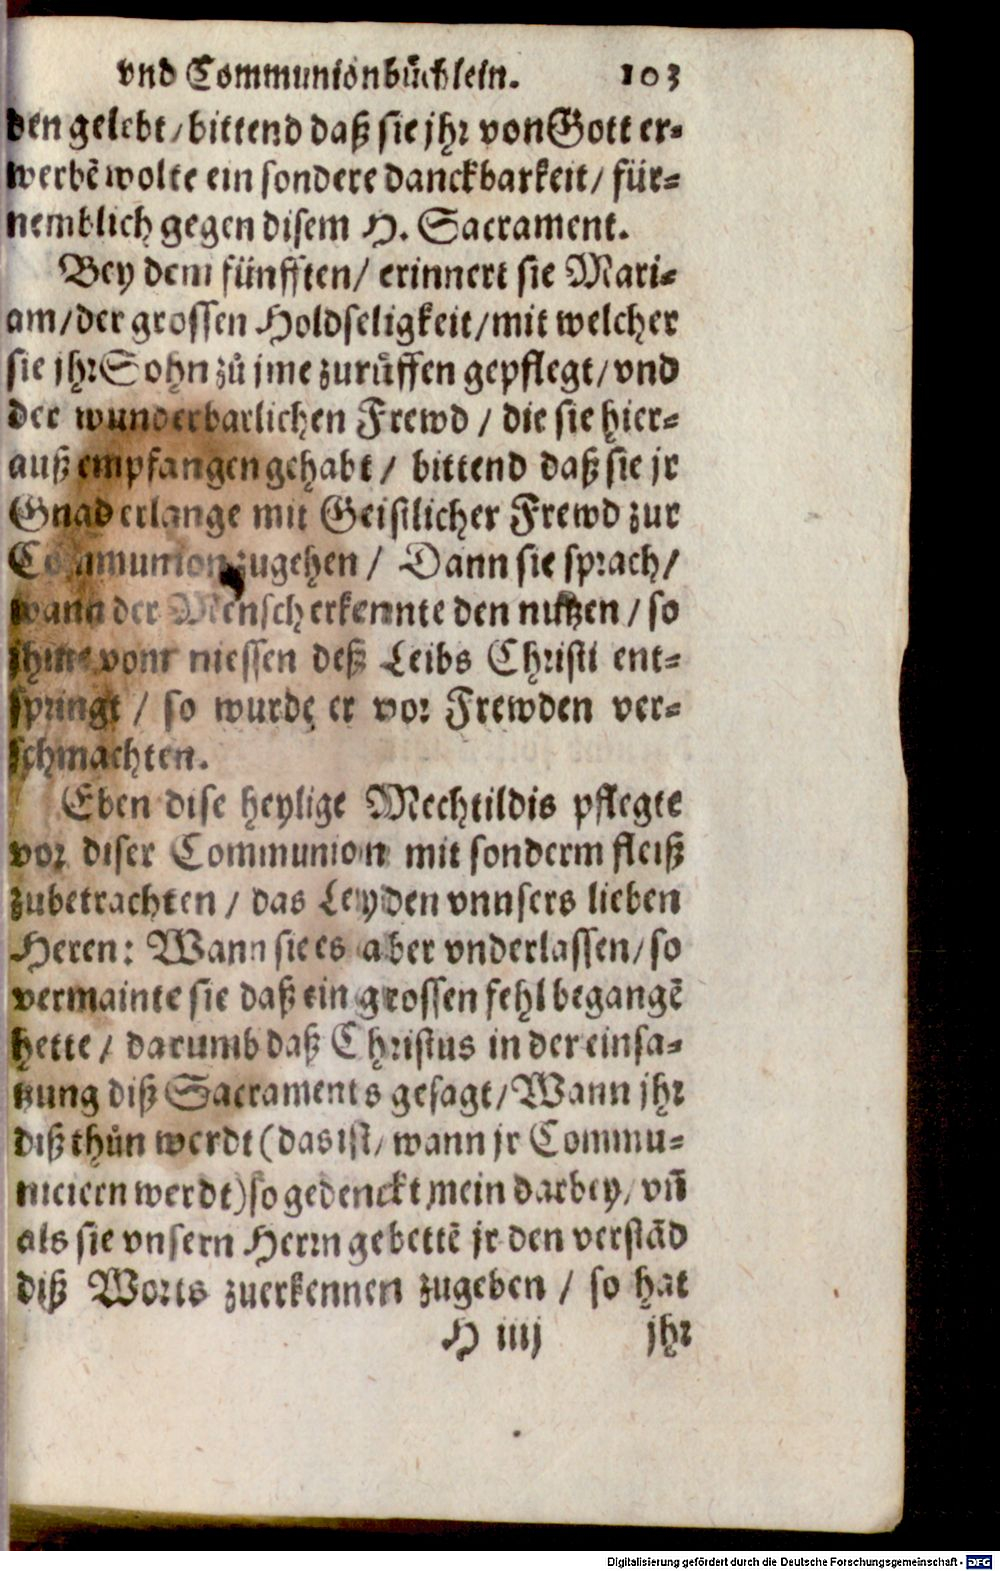 vnd Communionbuͤchlein. 103
den gelebt / bittend daß sie jhr von Gott er⸗
werbẽ wolte ein sondere danckbarkeit / für⸗
nemblich gegen disem H. Sacrament.
Bey dem fünfften / erinnert sie Mari⸗
am / der grossen Holdseligkeit / mit welcher
sie jhr Sohn zuͦ jme zuruͤffen gepflegt / vnd
der wunderbarlichen Frewd / die sie hier⸗
auß empfangen gehabt / bittend daß sie jr
Gnad erlange mit Geistlicher Frewd zur
Communion zugehen / Dann sie sprach /
wann der Mensch erkennte den nutzen / so
jhme vom niessen deß Leibs Christi ent⸗
springt / so wurde er vor Frewden ver⸗
schmachten.
Eben dise heylige Mechtildis pflegte
vor diser Communion mit sonderm fleiß
zubetrachten / das Leyden vnnsers lieben
Heren: Wann sie es aber vnderlassen / so
vermainte sie daß ein grossen fehl begangẽ
hette / darumb daß Christus in der einsa⸗
tzung diß Sacraments gesagt / Wann jhr
diß thuͦn werdt (das ist / wann jr Commu⸗
niciern werdt) so gedenckt mein darbey / vñ
als sie vnsern Herrn gebettẽ jr den verstãd
diß Worts zuerkennen zugeben / so hat
H iiij jhr
Digitalisierung gefördert durch die Deutsche Forschungsgemeinschaft - DFG